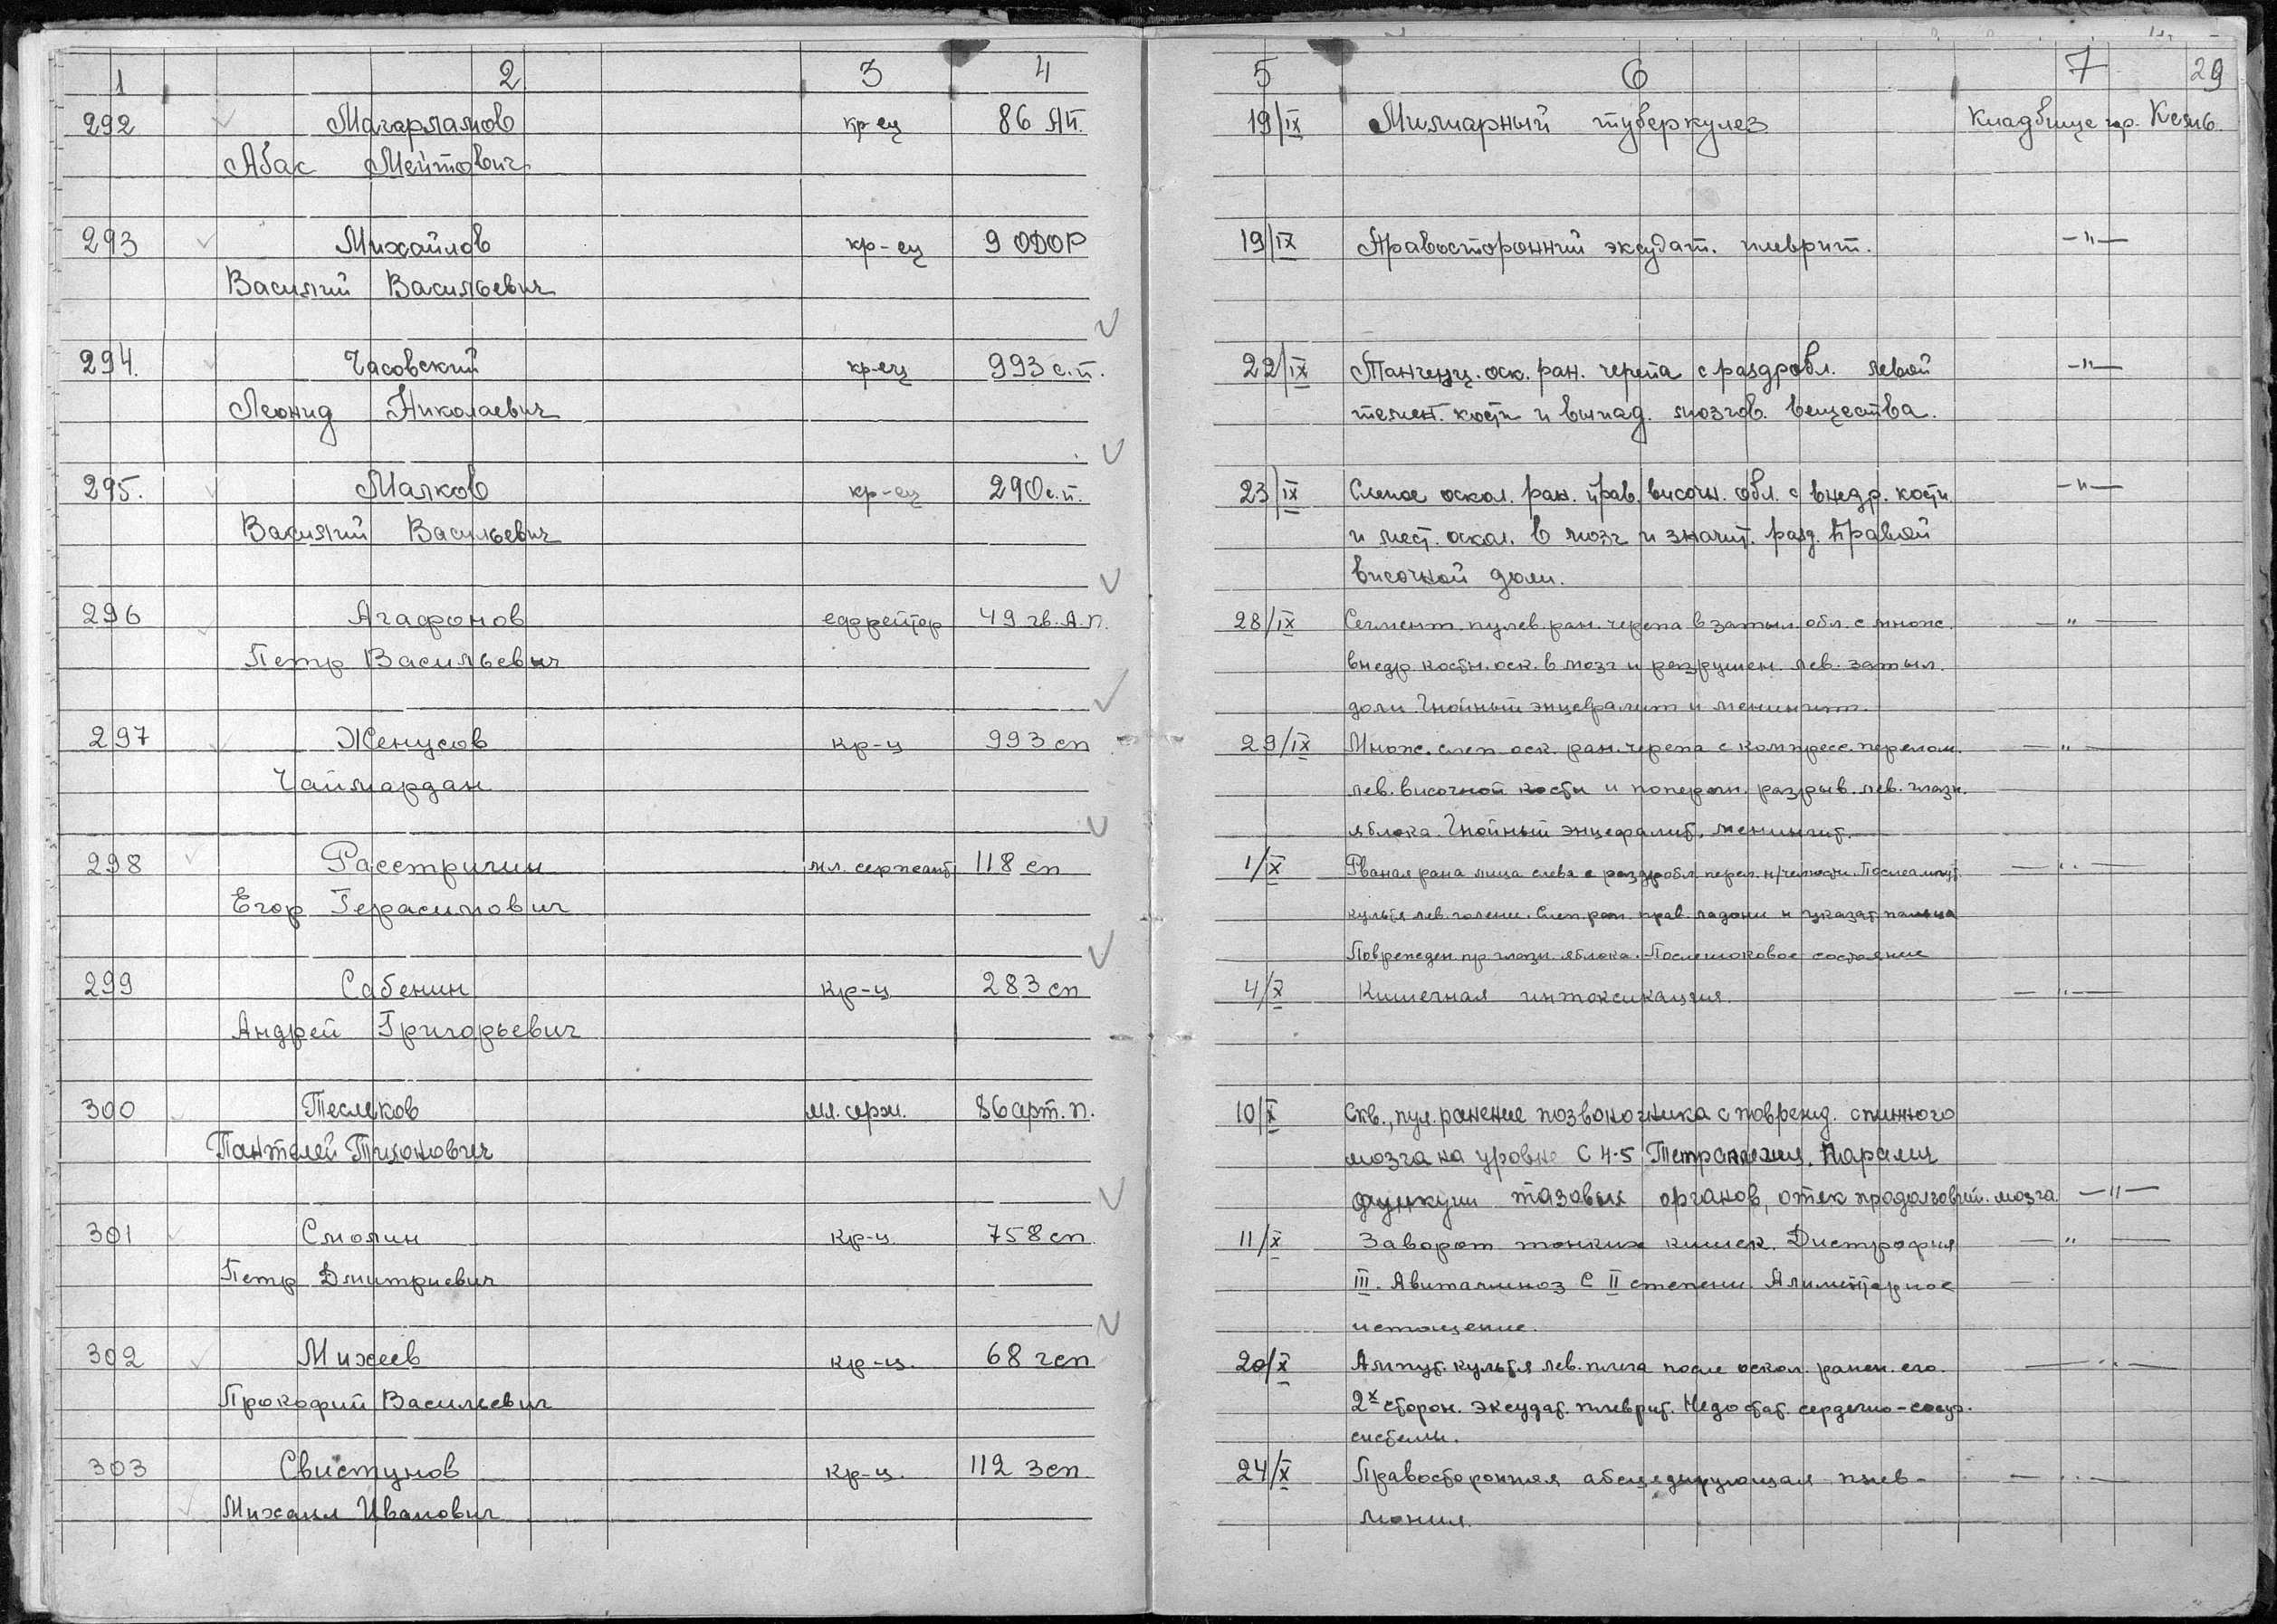 1 2 3 4 5 6 7 29
292 Магарламов кр-ец 86 АП. 19/IX Милиарный туберкулез Кладбище гор. Кемь.
Абас Мейтович
293 Михайлов кр-ец 9 ОДОР 19/IX Правосторонний эксудат. плеврит. —"—
Василий Васильевич
294. Часовский кр-ец 993 с.п. 22/IX Тангенц. оск. ран. черепа с раздробл. левой —"—
Леонид Николаевич темен. кости и выпад. мозгов. вещества.
295. Малков кр-ец 290 с.п. 23/IX Слепое оскол. ран. прав. височн. обл. с внедр. кости —"—
Василий Васильевич и мет. оскол. в мозг и значит. разд. правой
височной доли.
296 Агафонов ефрейтор 49 гв. А.П. 28/IX Сегмент. пулев. ран. черепа в затыл. обл. с множ. —"—
Петр Васильевич внедр. костн. оск. в мозг и разрушен. лев. затыл.
доли. Гнойный энцефалит и менингит.
297 Женусов кр-ц 993 сп 29/IX Множ. слеп. оск. ран. черепа с компресс. перелом. —"—
Чаймардан лев. височной кости и попереч. разрыв. лев. глазн.
яблока. Гнойный энцефалит, менингит.
298 Расстригин мл. сержант 118 сп 1/X Рваная рана лица слева с раздробл. перел. н/челюсти. Послеампут. —"—
Егор Герасимович культя лев. голени. Слеп. ран. прав. ладони и указат. пальца
Поврежден. пр. глазн. яблока. Послешоковое состояние
299 Сабенин кр-ц 283 сп 4/X Кишечная интоксикация. —"—
Андрей Григорьевич
300 Теслеков мл. серж. 86 арт. п. 10/X Скв., пул. ранение позвоночника с поврежд. спинного
Пантелей Тихонович мозга на уровне С 4-5 Тетраплегия. Паралич
функции тазовых органов, отек продолговат. мозга. —"—
301 Смолин кр-ц 758 сп 11/X Заворот тонких кишек. Дистрофия —"—
Петр Дмитриевич III. Авитаминоз С II степени. Алиментарное —
истощение.
302 Михеев кр-ц. 68 гсп 20/X Ампут. культя лев. плеча после оскол. ранен. его. —"—
Прокофий Васильевич 2х сторон. эксудат. плеврит. Недостат. сердечно-сосуд.
системы.
303 Свистунов кр-ц. 112 зсп 24/X Правосторонняя абсцедирующая пнев- —"—
Михаил Иванович мония.